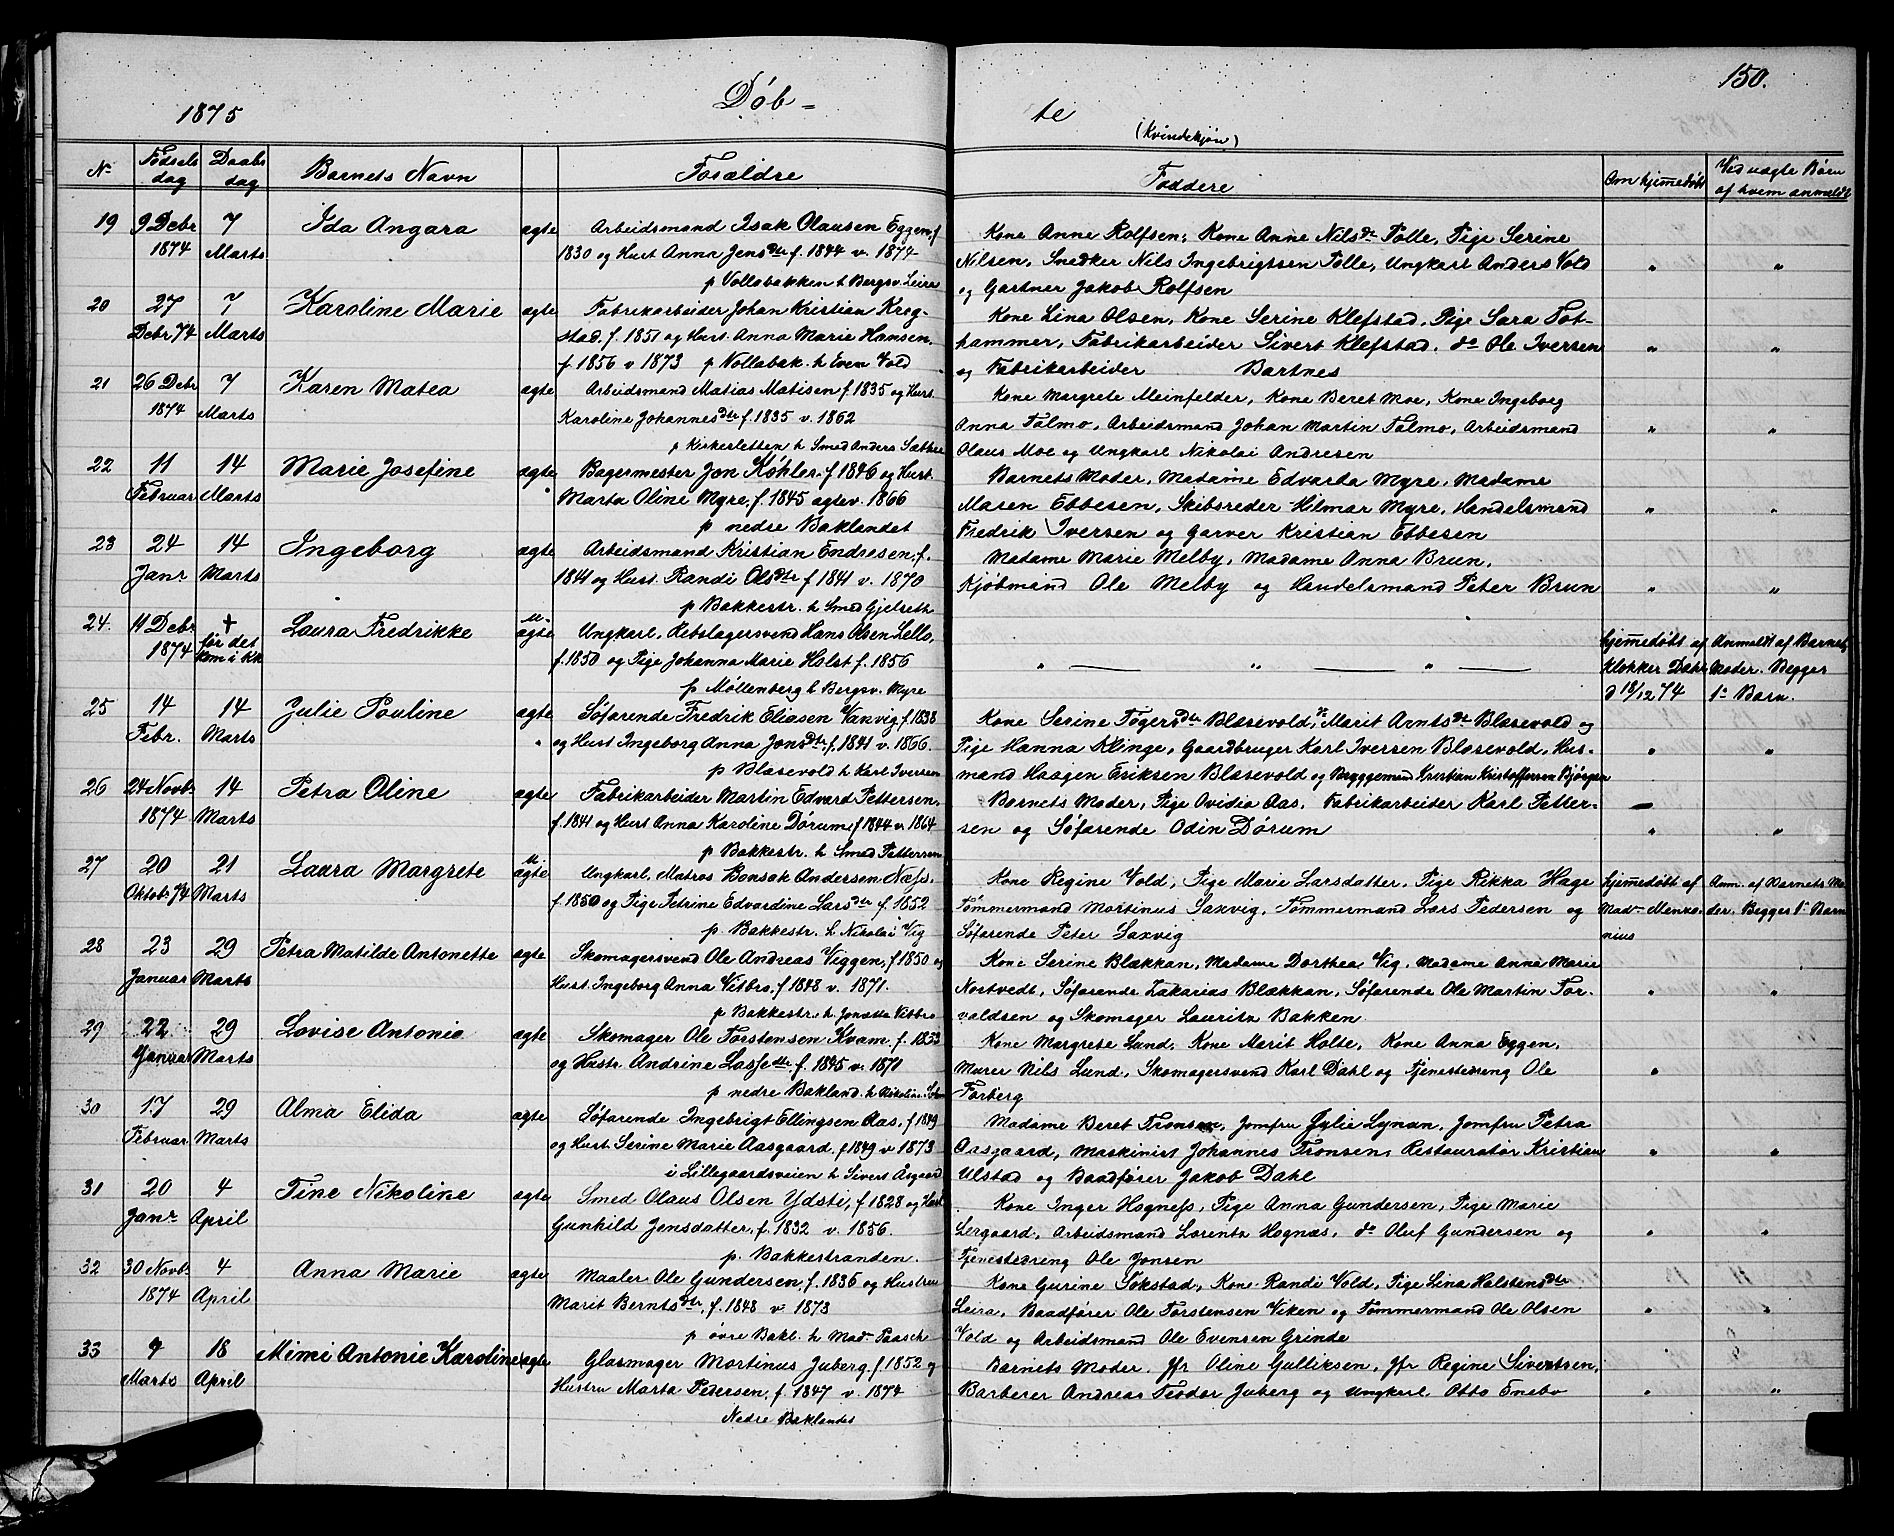 1875
Døb-
te
(Kvindekjøn)
150.
No
Fødsels dag
Daabs dag
Barnets Navn
Forældre
Faddere
Om hjemedøbt
Ved uægte Børn af hvem anmeldt
19 9 Debr 7 Ida Angara ægte Arbeidsmand Isak Olausen Eggen, f
1874 Marts 1830 og Hust Anna Jensdtr f. 1844 v. 1874
p Vollabakken h Bergsv. Leira
Kone Anne Rolfsen, Kone Anne Nilsdr Tolle, Pige Serine
Nilsen, Snedker Nils Ingebrigtsen Tolle, Ungkarl Anders Vold " "
og Gartner Jakob Rolfsen
20 27 7 Karoline Marie ægte Fabrikarbeider Johan Kristian Kreg-
Debr 74 Marts stad. f. 1851 og Hust. Anna Marie Hansen.
f. 1856 v 1873 p Vollabak. h Even Vold
Kone Lina Olsen, Kone Serine Klefstad, Pige Sara Fot-
hammer, Fabrikarbeider Sivert Klefstad. do Ole Iversen " "
og Fabrikarbeider Bartnes
21 26 Debr 7 Karen Matea ægte Arbeidsmand Matias Matisen f. 1835 og Hust.
1874 Marts Karoline Johannesdtr f. 1835 v. 1862
p Kirkesletten h Smed Anders Sætther
Kone Margrete Meinfelder, Kone Beret Moe, Kone Ingeborg
Anna Talmo, Arbeidsmand Johan Martin Talmo, Arbeidsmand " "
Olaus Moe og Ungkarl Nikolai Andresen
22 11 14 Marie Josefine ægte Bagermester Jon Køhler. f 1846 og Hust.
Februar Marts " Marta Oline Myre, f. 1845 agtev. 1866
p nedre Baklandet
Barnets Moder, Madame Edvarda Myre, Madame
Maren Ebbesen, Skibsreder Hilmar Myre, Handelsmand " "
Fredrik Iversen og Garver Kristian Ebbesen
23 24 14 Ingeborg ægte Arbeidsmand Kristian Endresen, f.
Janr Marts 1841 og Hust. Randi Olsdtr f 1841 v. 1870
p Bakkestr. h Smed Gjelseth
Madame Marie Melby, Madame Anna Brun,
Kjøbmand Ole Melby og Handelsmand Peter Brun " "
24. 11 Debr + Laura Fredrikke u. ægte Ungkarl, Rebslagersvend Hans Olsen Lello,
1874 før det kom i Kk f. 1850 og Pige Johanna Marie Holst f. 1856
p Møllenberg h Bergsv. Myre
" " " hjemedøbt af Anmeldt af Barnets
Klokker Dahl Moder. Begges
d 18/12 74 1e Barn.
25 14 14 Julie Pauline ægte Søfarende Fredrik Eliasen Vanvig f. 1838
Febr. Marts " og Hust Ingeborg Anna Jonsdtr f. 1841 v. 1866.
p Blæsevold h Karl Iversen
Kone Serine Tøgersdtr Blæsevold, K Marit Arntsdtr Blæsevold og
Pige Hanna Klinge, Gaardbruger Karl Iversen Blæsevold, Hus- " "
mand Haagen Eriksen Blæsevold og Bryggemand Kristian Kristoffersen Bjørgen
26 24 Novb. 14 Petra Oline ægte Fabrikarbeider Martin Edvard Pettersen,
1874 Marts f. 1841 og Hust Anna Karoline Dørum f 1844 v. 1864
p Bakkestr. h Smed Pettersen
Barnets Moder, Pige Ovidia Aas, Fabrikarbeider Karl Petter-
sen og Søfarende Odin Dørum " "
27 20 21 Laura Margrete u. ægte Ungkarl, Matros Bonsak Andersen Næss.
Oktob. 74 Marts f. 1850 og Pige Petrine Edvardine Larsdtr f. 1852
p. Bakkestr. h Nikolai Vig
Kone Regine Vold, Pige Marie Larsdatter, Pige Rikka Hage hjemedøbt af Anm. af Barnets Mo-
Tømmermand Martinus Saxvig, Tømmermand Lars Pedersen og Mad. Menxo- der. Begges 1e Barn
Søfarende Peter Saxvig nius
28 23 29 Petra Matilde Antonette ægte Skomagersvend Ole Andreas Viggen, f 1850 og
Januar Marts Hust. Ingeborg Anna Vitbro, f. 1848 v. 1871.
p Bakkestr. h Jonetta Vibbro
Kone Serine Blækkan, Madame Dorthea Vig. Madame Anna Marie
Nostvedt, Søfarende Zakarias Blækkan, Søfarende Ole Martin Tor- " "
valdsen og Skomager Lauritz Bakken.
29 22 29 Lovise Antonie ægte Skomager Ole Torstensen Kvam. f. 1853
Januar Marts og Hustr. Andrine Lassedtr. f. 1845 v. 1871
p nedre Bakland. h
Kone Margrete Lund, Kone Marit Holte, Kone Anna Eggen,
Murer Nils Lund, Skomagersvend Karl Dahl og Tjenestedreng Ole "
Forberg
30 17 29 Alma Elida ægte Søfarende Ingebrigt Ellingsen Aas, f 1849
Februar Marts og Hust. Serine Marie Aasgaard, f 1849 v 1873
i Lillegaardsveien h Sivert Asgaard
Madame Beret Fronsen, Jomfru Julie Lynan, Jomfru Petra
Aasgaard, Maskinist Johannes Fronsen, Restauratør Kristian " "
Ulstad og Baadfører Jakob Dahl
31 20 4 Tine Nikoline ægte Smed Olaus Olsen Ydsti, f 1828 og Hust
Janr April Gunhild Jensdatter, f. 1832 v. 1856.
p. Bakkestranden.
Kone Inger Hogness, Pige Anna Gundersen, Pige Marie
Lergaard, Arbeidsmand Lorentz Hognæs, do Oluf Gundersen og " "
Tjenestedreng Ole Jonsen
32 30 Novb. 4 Anna Marie ægte Maaler Ole Gundersen, f. 1836 og Hustru
1874 April Marit Berntsdtr, f. 1848 v. 1873
p øvre Bakl. h Mad. Paasch
Kone Gurine Tokstad, Kone Randi Vold, Pige Lina Holstensdtr
Leira, Baadfører Ole Torstensen Viken og Tømmermand Ole Olsen " "
Vold og Arbeidsmand Ole Evensen Grinde
33 9 18 Mimi Antonie Karoline ægte Glasmager Martinus Juberg, f 1852 og
Marts April Hustru Marta Pedersen, f. 1847 v. 1874
Nedre Baklandet
Barnets Moder, Jfr Oline Gulliksen, Jfr Regine Sivertsen,
Barberer Andreas Teodor Juberg og Ungkarl Otto Enebo " "